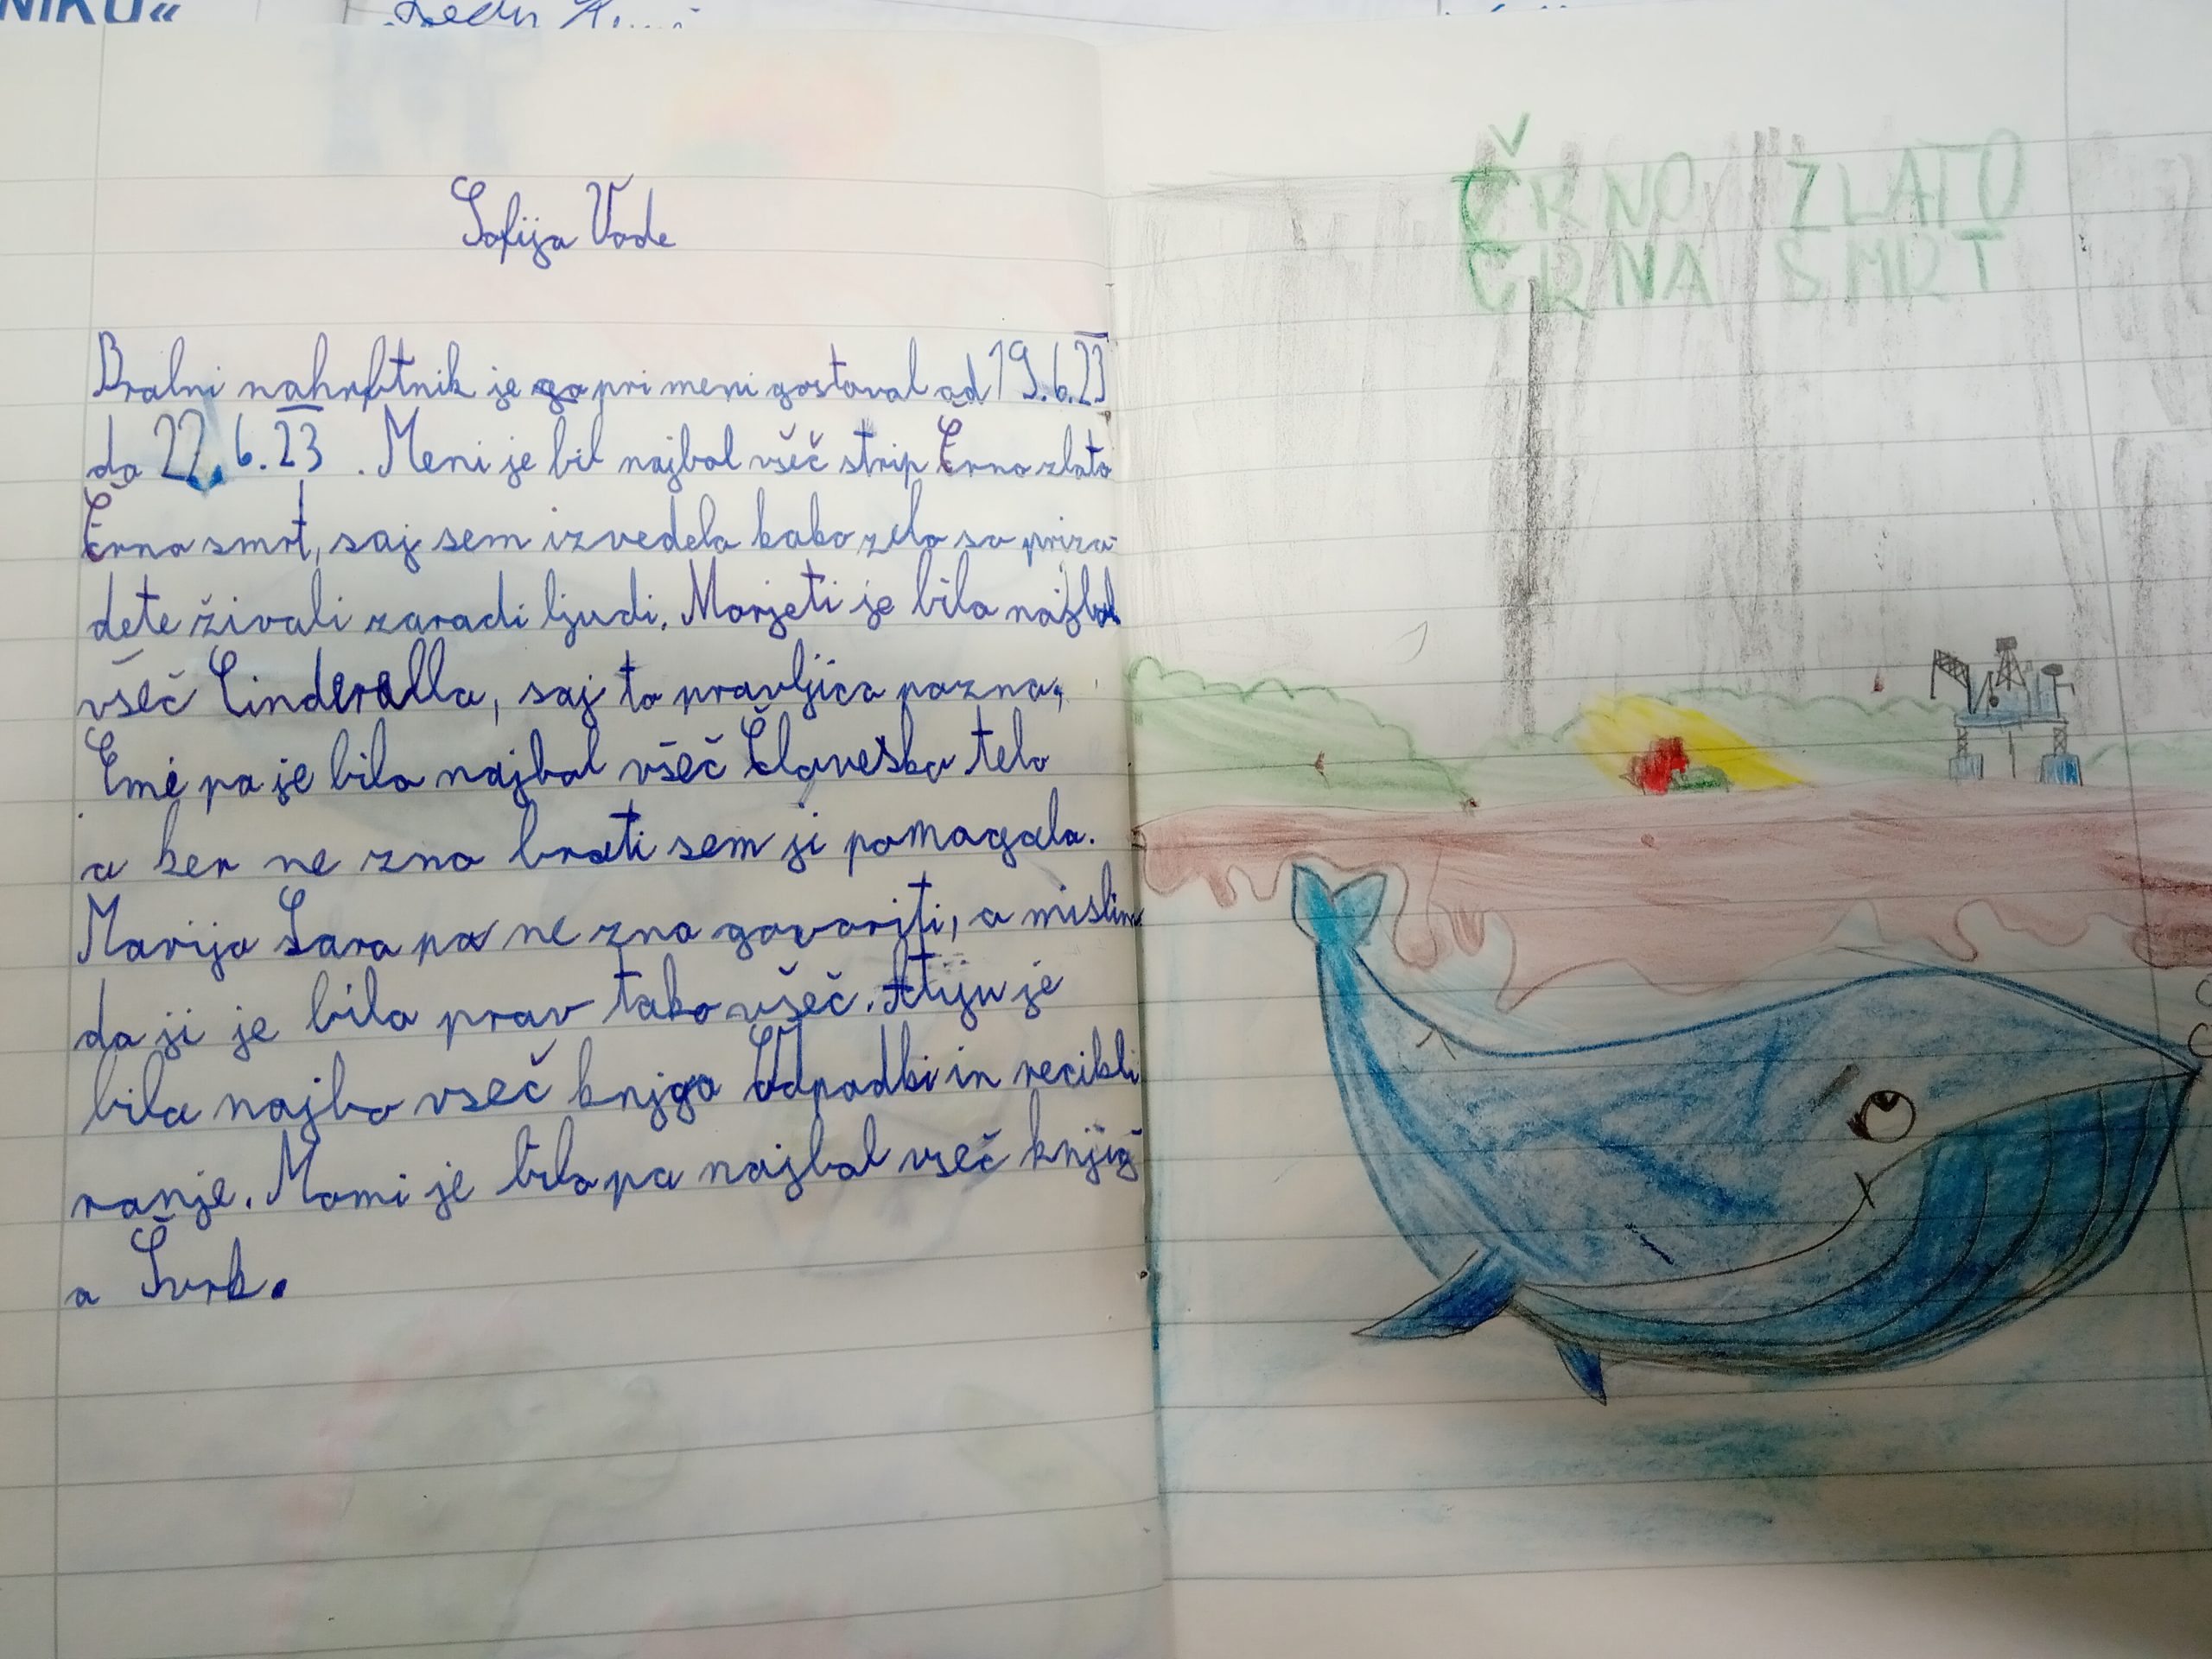 NIKU«
Sofija Vode
Bralni nahrbtnik je pri meni gostoval od 19.6.23
do 22.6.23. Meni je bil najbol všeč strip Črno zlato
Črna smrt, saj sem izvedela kako zelo so priza-
dete živali zaradi ljudi. Marjeti je bila najbol
všeč Cinderella, saj to pravljico pozna,
Emi pa je bilo najbol všeč Človeško telo
a ker ne zna brati sem ji pomagala.
Marija Sara pa ne zna govoriti, a mislim
da ji je bilo prav tako všeč. Atiju je
bila najbo všeč knjga Odpadki in recikli
ranje. Mami je bila pa najbol všeč knjig
a Švrk.
ČRNO ZLATO
ČRNA SMRT